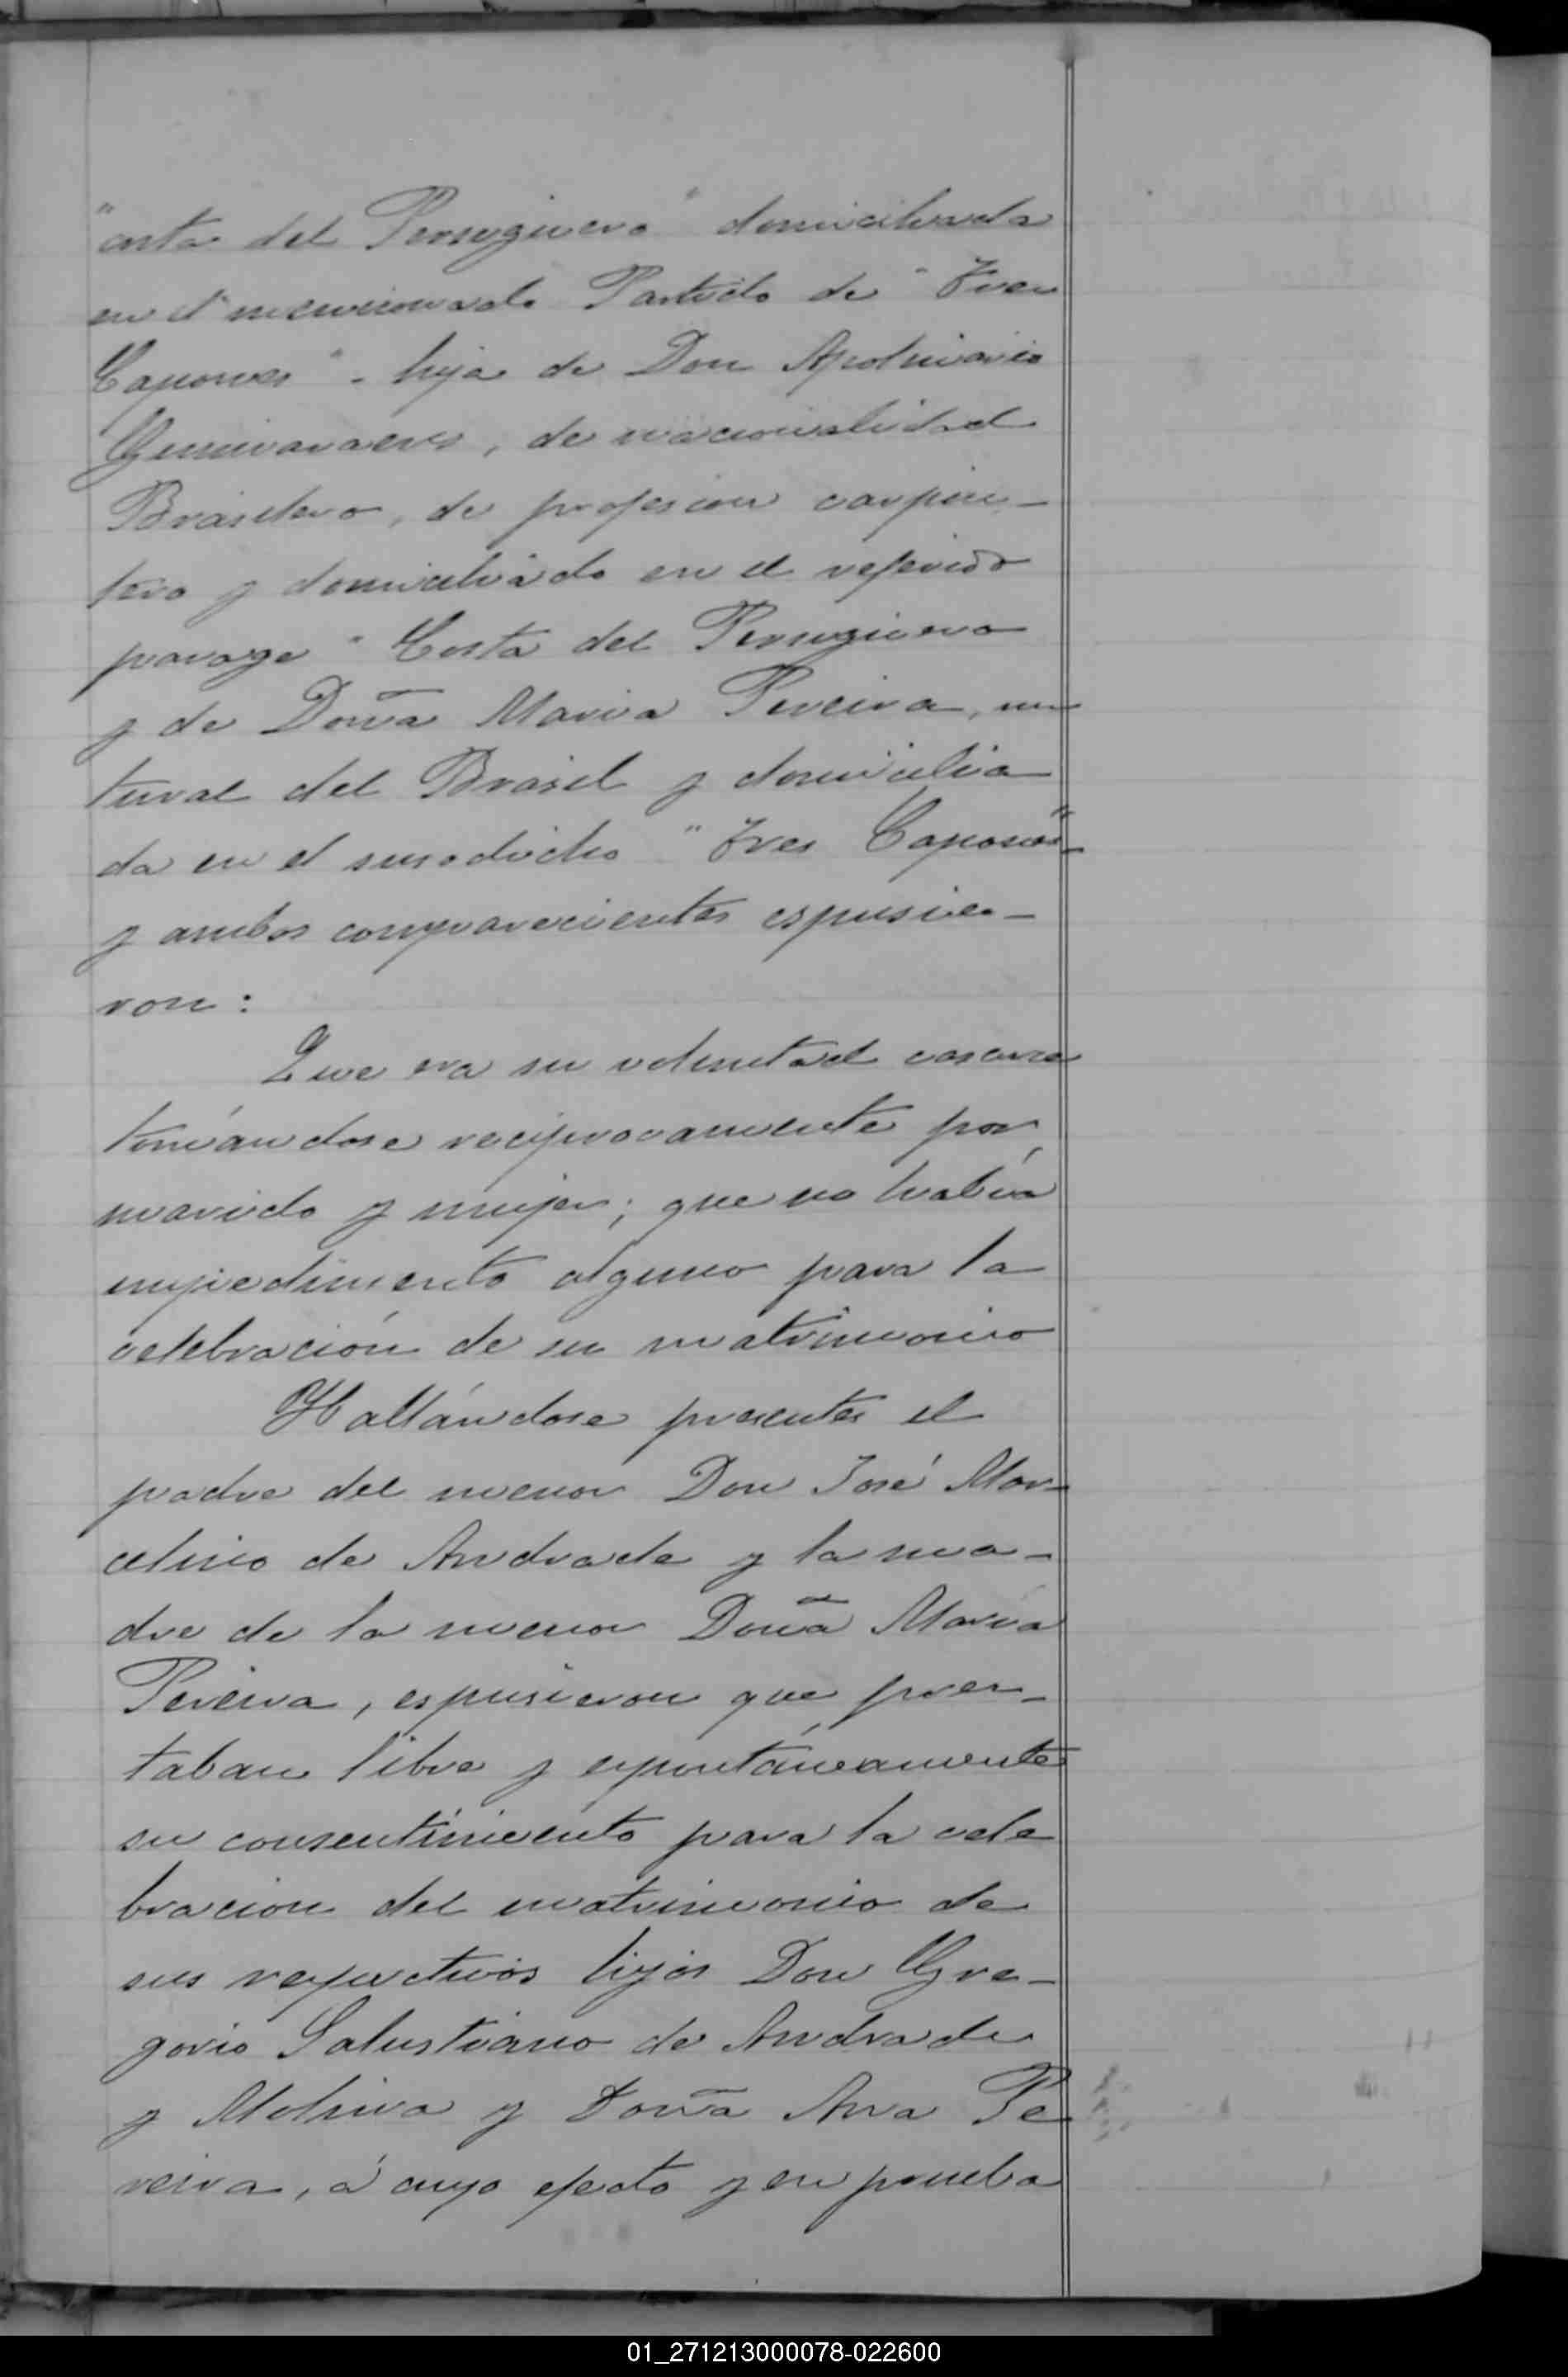 "costa del Persiguero" domiciliada
en el mencionado Partido de "Tres
Capones" - hija de Don Apolinario
de nacionalidad
Brasilero, de profesion carpin-
tero y domiciliado en el referido
parage "Costa del Persiguero
y de Doña Maria Pereira, na
tural del Brasil y domicilia
da en el susodicho "Tres Capones"
y ambos comparecientes espusie-
ron:
Que era su voluntad casarse
tomándose reciprocamente por
marido y mujer; que no había
impedimento alguno para la
celebración de su matrimonio
Hallándose presentes el
padre del menor Don José Mar-
celino de Andrade y la ma-
dre de la menor Doña María
Pereira, espusieron que pres-
taban libre y espontáneamente
su consentimiento para la cele
bracion del matrimonio de
sus respectivos hijos Don Gre-
gorio Salustiano de Andrade
y Molina y Doña Ana Pe
reira, á cuyo efecto y en prueba
01_271213000078-022600